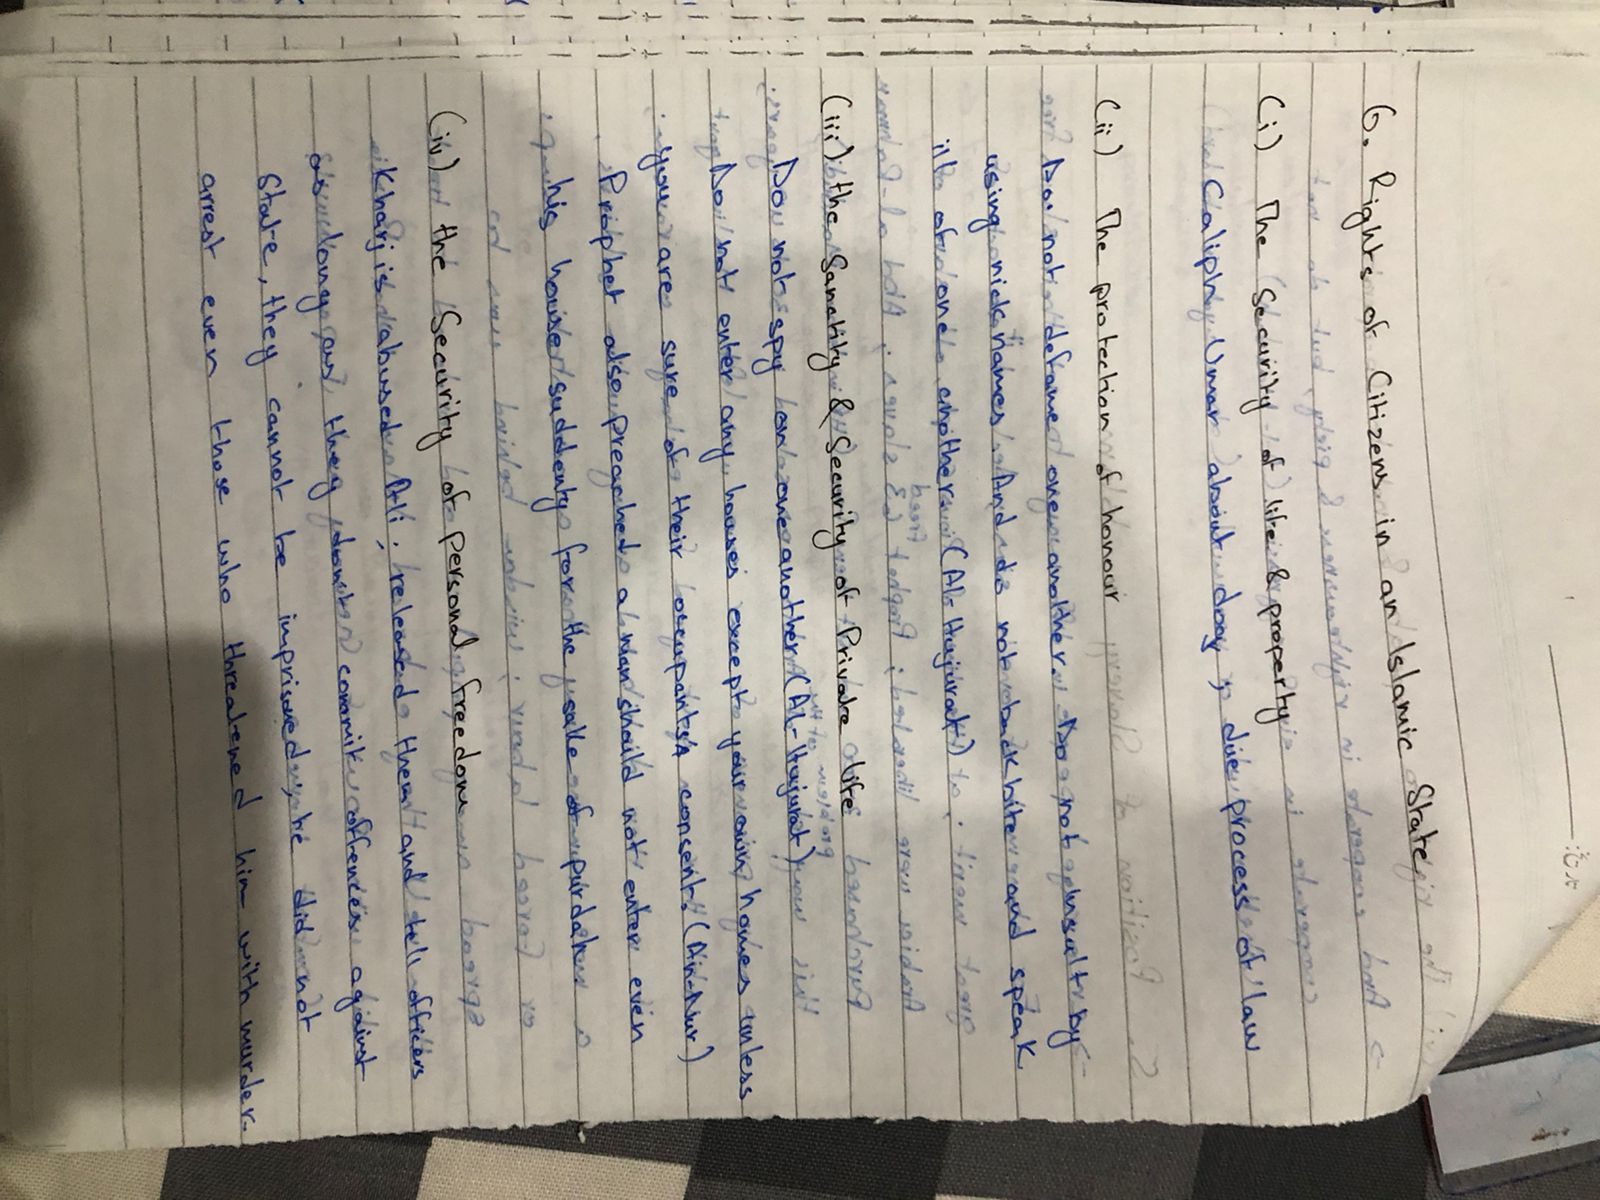 تاریخ:
6. Rights of Citizens in an Islamic State
(i) The Security of life & property
Caliph Umar about dog, due process of law
(ii) The protection of honour
Do not defame one another. Do not insult by
using nicknames. And do not backbite and speak
ill of one another. (Al-Hujurat)
(iii) the Sanctity & Security of Private life
Do not spy on one another (Al-Hujurat)
Do not enter any houses except your own homes unless
you are sure of their occupants consent. (An-Nur)
Prophet also preached a man should not enter even
his house suddenly for the sake of purdah.
(iv) the Security of personal freedom
Kharjis abused Ali; released them and tell officers
as long as they don't commit offences against
State, they cannot be imprisoned; he did not
arrest even those who threatened him with murder.